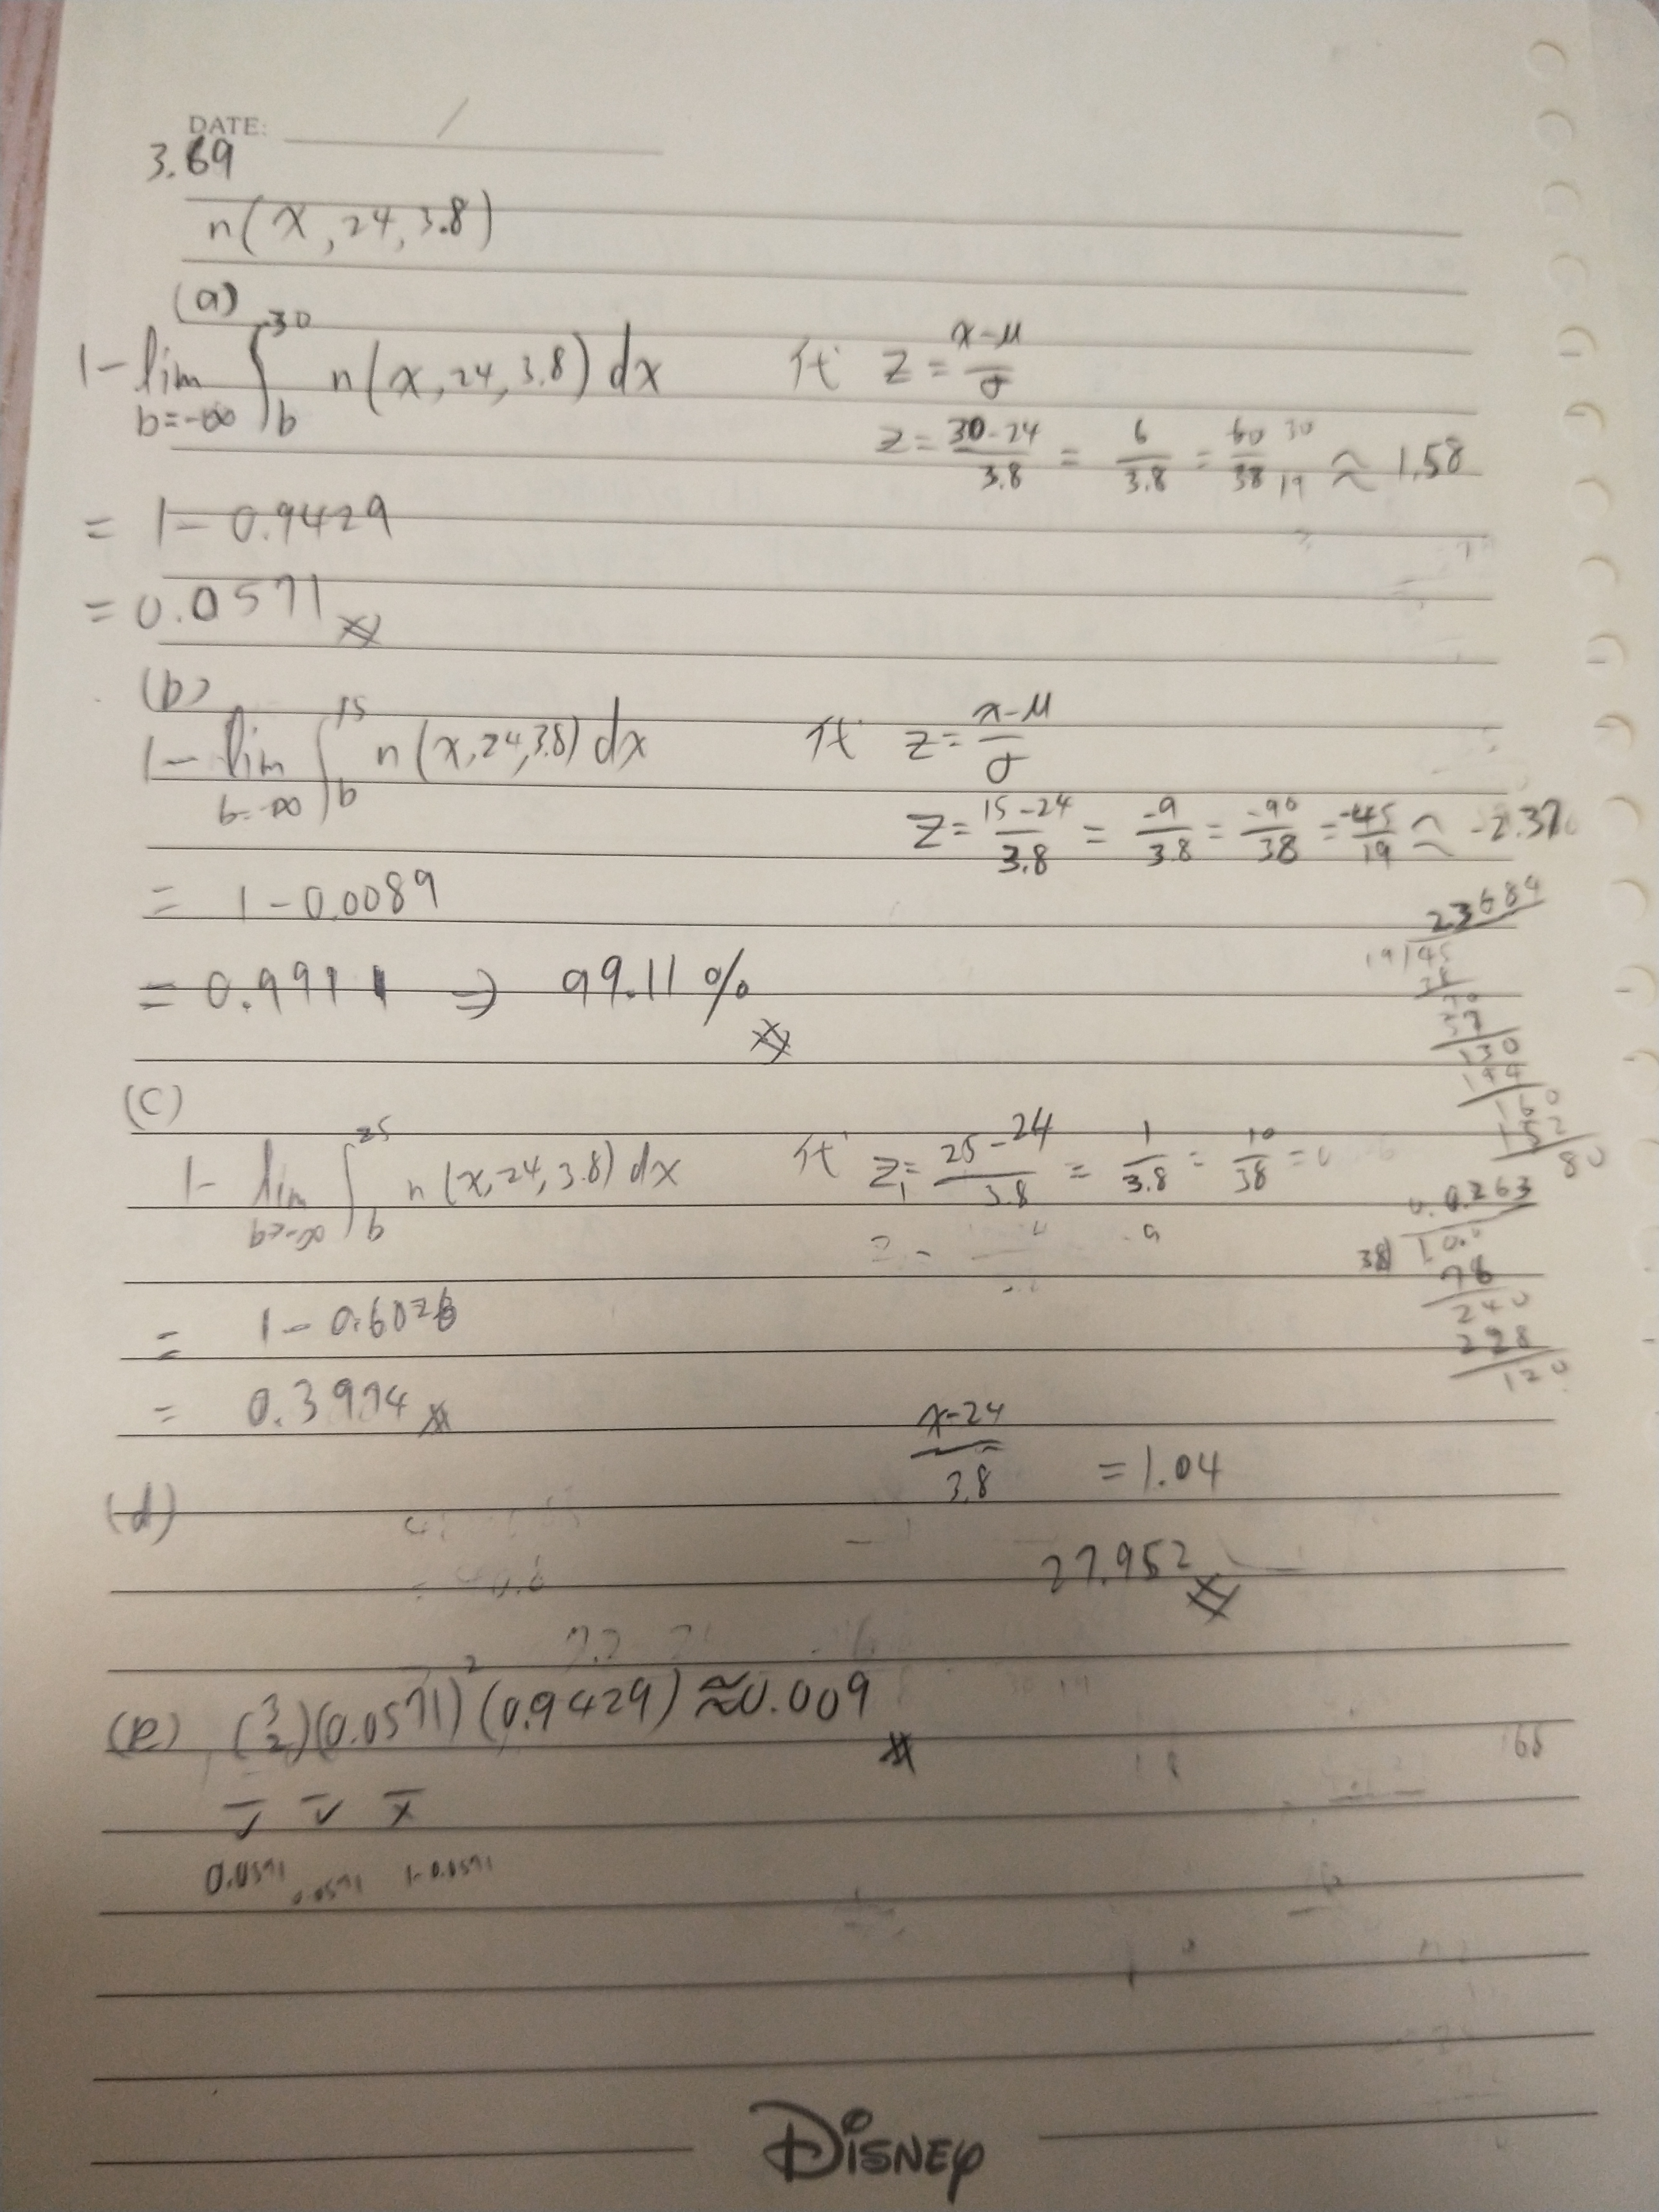 DATE: /
3.69
n(x, 24, 3.8)
(a)
1-lim b=-∞ ∫_b^30 n(x, 24, 3.8) dx 代 z = (x-μ)/σ
z = (30-24)/3.8 = 6/3.8 = 60/38 30/19 ≈ 1.58
= 1-0.9429
= 0.0571
(b)
1-lim b=-∞ ∫_b^15 n(x, 24, 3.8) dx 代 z = (x-μ)/σ
z = (15-24)/3.8 = -9/3.8 = -90/38 = -45/19 ≈ -2.37
= 1-0.0089
= 0.9911 ⇒ 99.11%
23684
19 45
37
130
152
80
(c)
1-lim b→-∞ ∫_b^25 n(x, 24, 3.8) dx 代 z₁ = (25-24)/3.8 = 1/3.8 = 10/38 = 0
0.263
38 10.0
76
240
228
120
= 1-0.6026
= 0.3974
(d) (x-24)/3.8 = 1.04
27.952
(e) (3 2)(0.0571)² (0.9429) ≈ 0.009
✓ ✓ x
0.0571 0.0571 1-0.0571
DISNEY